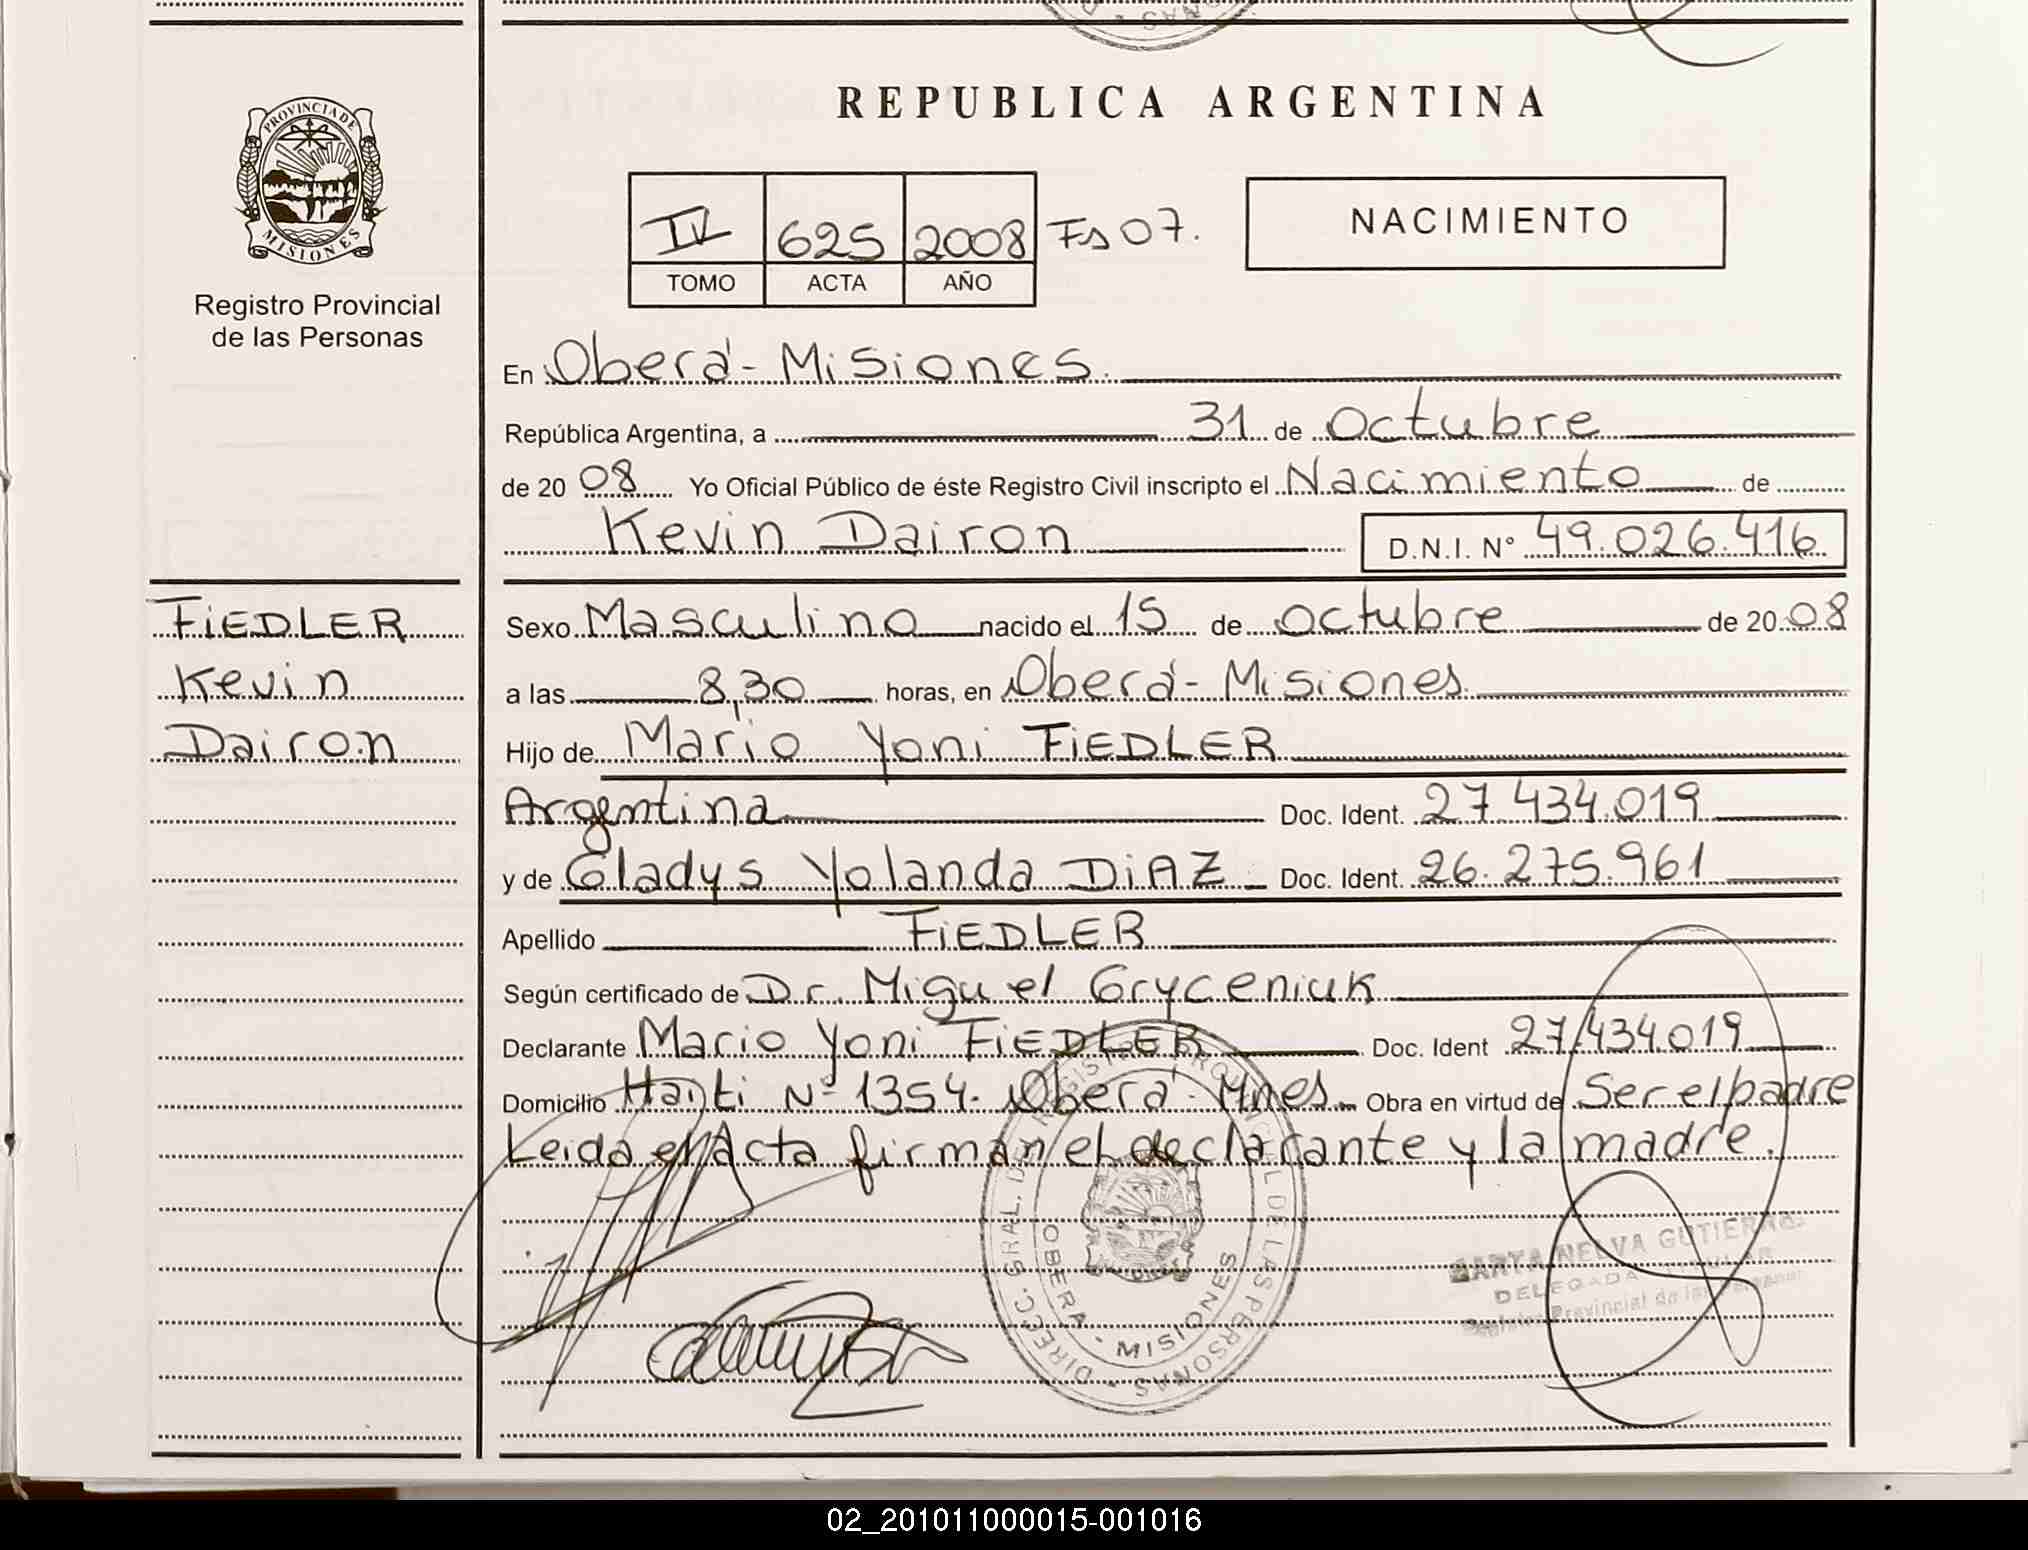 REPUBLICA ARGENTINA
PROVINCIA DE
MISIONES
Registro Provincial
de las Personas
IV 625 2008 Fs 07.
TOMO ACTA AÑO
NACIMIENTO
En Oberá - Misiones.
República Argentina, a 31 de Octubre
de 20 08 Yo Oficial Público de éste Registro Civil inscripto el Nacimiento de
Kevin Dairon D.N.I. N° 49.026.416
FiEDLER
Kevin
Dairon
Sexo Masculino nacido el 15 de Octubre de 20 08
a las 8,30 horas, en Oberá - Misiones.
Hijo de Mario Yoni FiEDLER
Argentina Doc. Ident. 27.434.019
y de Gladys Yolanda DiAZ Doc. Ident. 26.275.961
Apellido FiEDLER
Según certificado de Dr. Miguel Gryceniuk
Declarante Mario Yoni FiEDLER Doc. Ident 27.434.019
Domicilio Haiti Nº 1354. Oberá - Mnes. Obra en virtud de Ser el padre
Leida el Acta firman el declarante y la madre.
DIRECC. GRAL. DEL REGISTRO PROVINCIAL DE LAS PERSONAS
OBERA - MISIONES
MARTA NELVA GUTIERREZ
DELEGADA TITULAR
Registro Provincial de las Personas
02_201011000015-001016